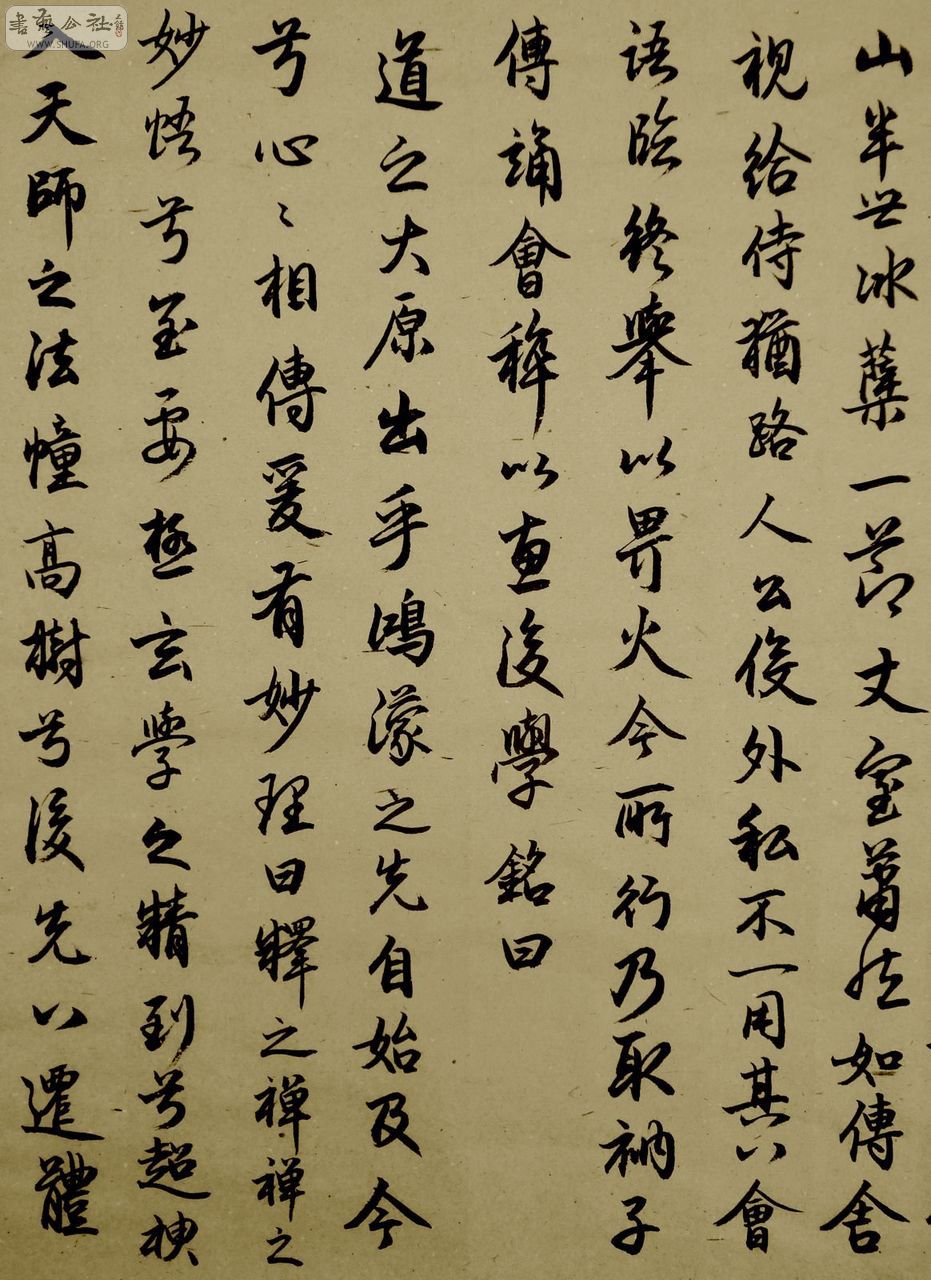 山半世冰蘗一節丈室蕭然如傳舍
視給侍猶路人公役外私不一用其八會
語臨終舉以畀火今所行乃耴衲子
傳誦會稡以惠後學銘曰
道之大原出乎鴻濛之先自始及今
兮心〻相傳爰有妙理曰釋之禪禪之
妙悟兮至要極玄學之精到兮超
天師之法幢高樹兮後先八遷體
書藝公社
WWW.SHUFA.ORG